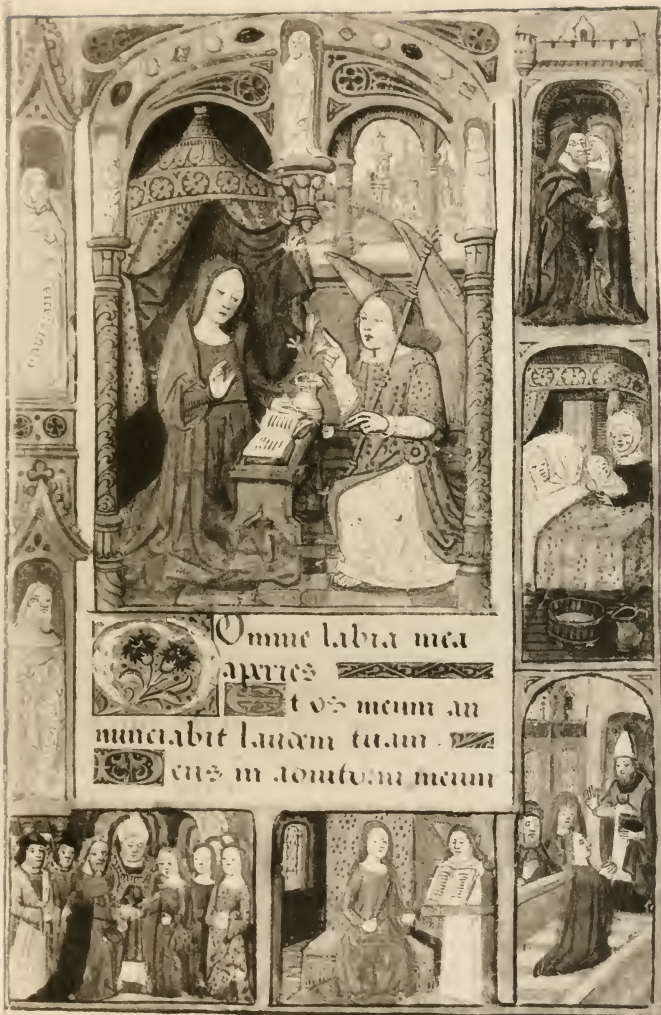 Domine labia mea
aperies
Et os meum an
nunciabit laudem tuam.
Deus in adiutorium meum